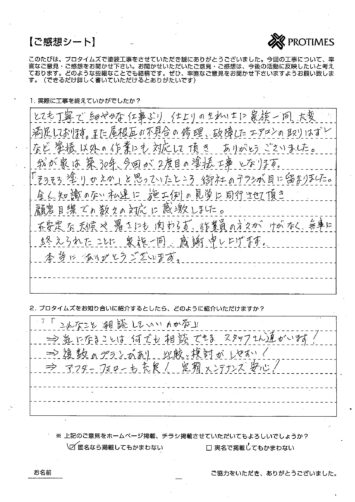 【ご感想シート】
PROTIMES
このたびは、プロタイムズで塗装工事をさせていただき誠にありがとうございました。今回の工事について、率
直なご意見・ご感想をお聞かせ下さい。お聞かせいただいたご意見・ご感想は、今後の活動に反映したいと考え
ております。どのような些細なことでも結構です。ぜひ、率直なご意見をお聞かせ下さいますようお願い致しま
す。（できるだけ詳しく書いていただけるとありがたいです）
1. 実際に工事を終えていかがでしたか？
とても丁寧で細やかな仕事ぶり、仕上りのきれいさに家族一同 大変
満足しております。また屋根瓦の不具合の修理、故障したエアコンの取りはずし
など塗装以外の作業にも対応して頂き ありがとうございました。
我が家は築30年、今回が2度目の塗装工事となります。
「そろそろ塗りかえかし」と思っていたところ 御社のチラシが目に留まりました。
全く知識のない私達に 施工例の見学に同行させて頂き
顧客目線での数々の対応に感激しました。
不安定な天候や暑さにも 関わらず、作業員のケガ が けがなく 無事に
終えられたことに 家族一同、感謝申し上げます。
本当に ありがとうございます。
2. プロタイムズをお知り合いに紹介するとしたら、どのように紹介いただけますか？
「こんなこと 相談してもいいのかな」
⇒気になることは 何でも 相談できる スタッフさん達がいます！
⇒複数のプランがあり 比較・検討がしやすい！
⇒アフターフォローも充実！ 定期メンテナンス 安心！
※ 上記のご意見をホームページ掲載、チラシ掲載させていただいてもよろしいでしょうか？
☑匿名なら掲載してもかまわない □実名で掲載してもかまわない
お名前
ご協力をいただき、ありがとうございました。